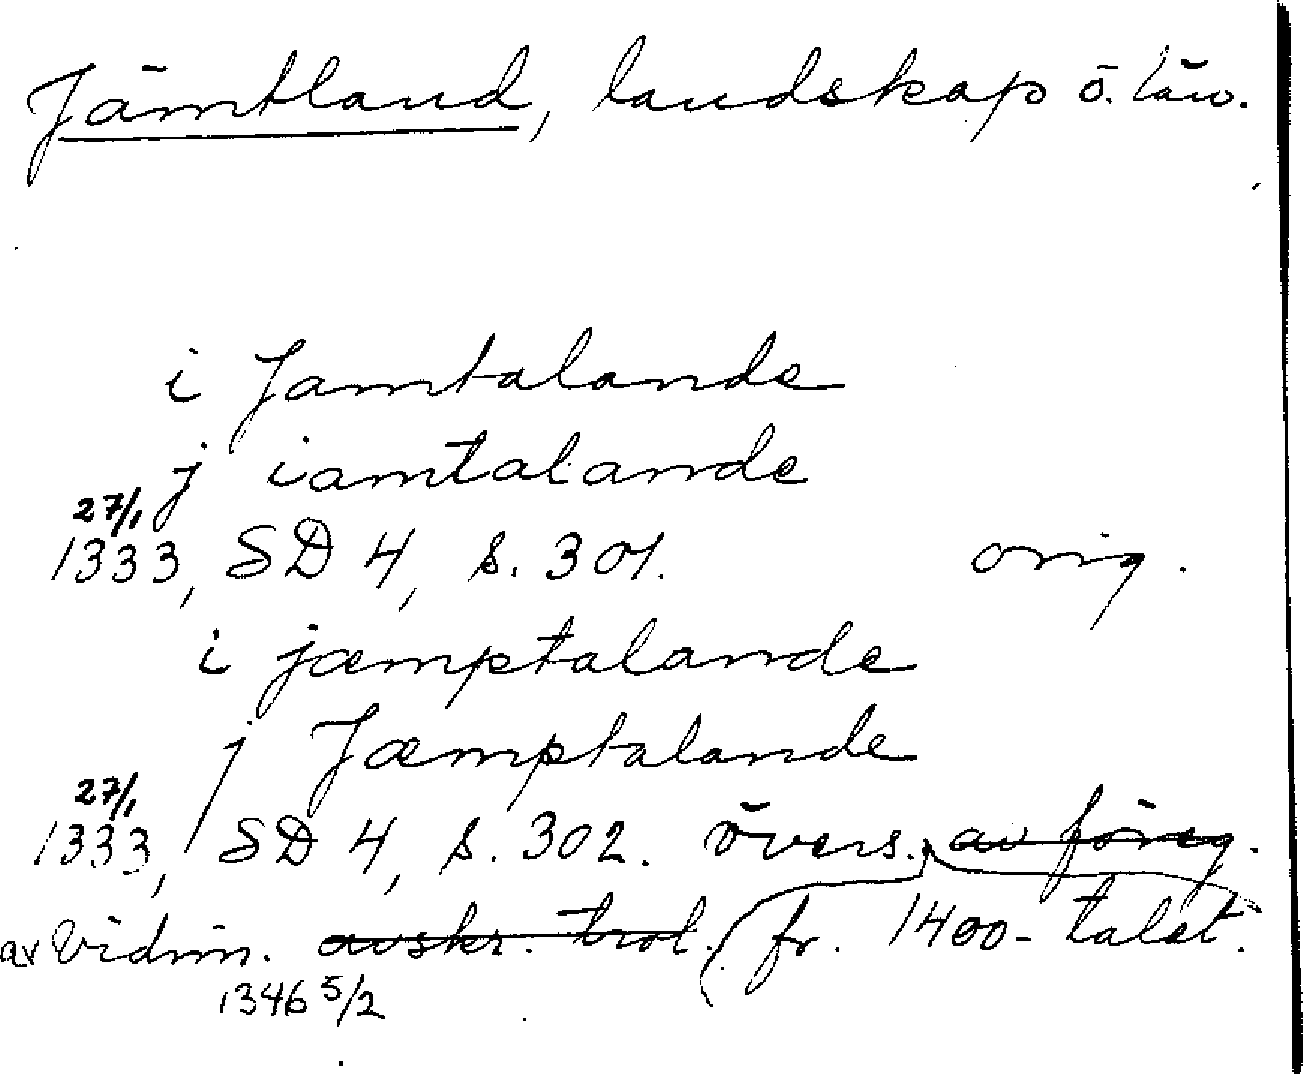 Jämtland, landskap o. län.
i Jamtalande
j iamtalande
27/1
1333, SD 4, s. 301. orig.
i jæmptalande
j Jæmptalande
27/1
1333, SD 4, s. 302. övers. av föreg.
av Vidim. avskr. trol. fr. 1400-talet.
1346 5/2